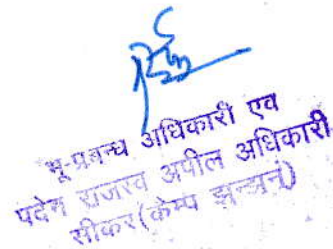 भू-प्रबन्ध अधिकारी एव
पदेन राजस्व अपील अधिकारी
सीकर(केम्प झुन्झुनूं)